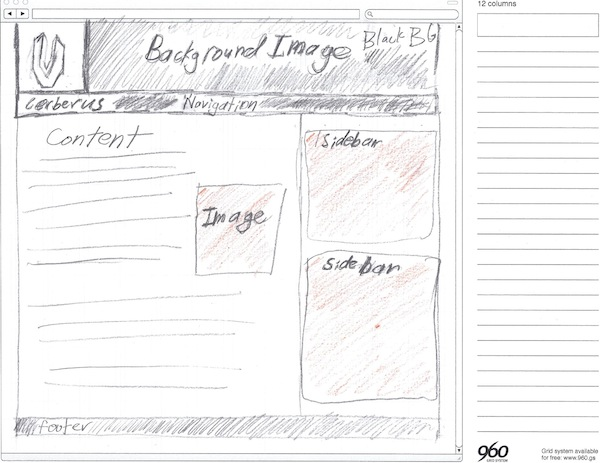 12 columns
Background Image
Black BG
Cerberus Navigation
Content
Sidebar
Image
Sidebar
footer
960
GRID SYSTEM
Grid system available
for free: www.960.gs